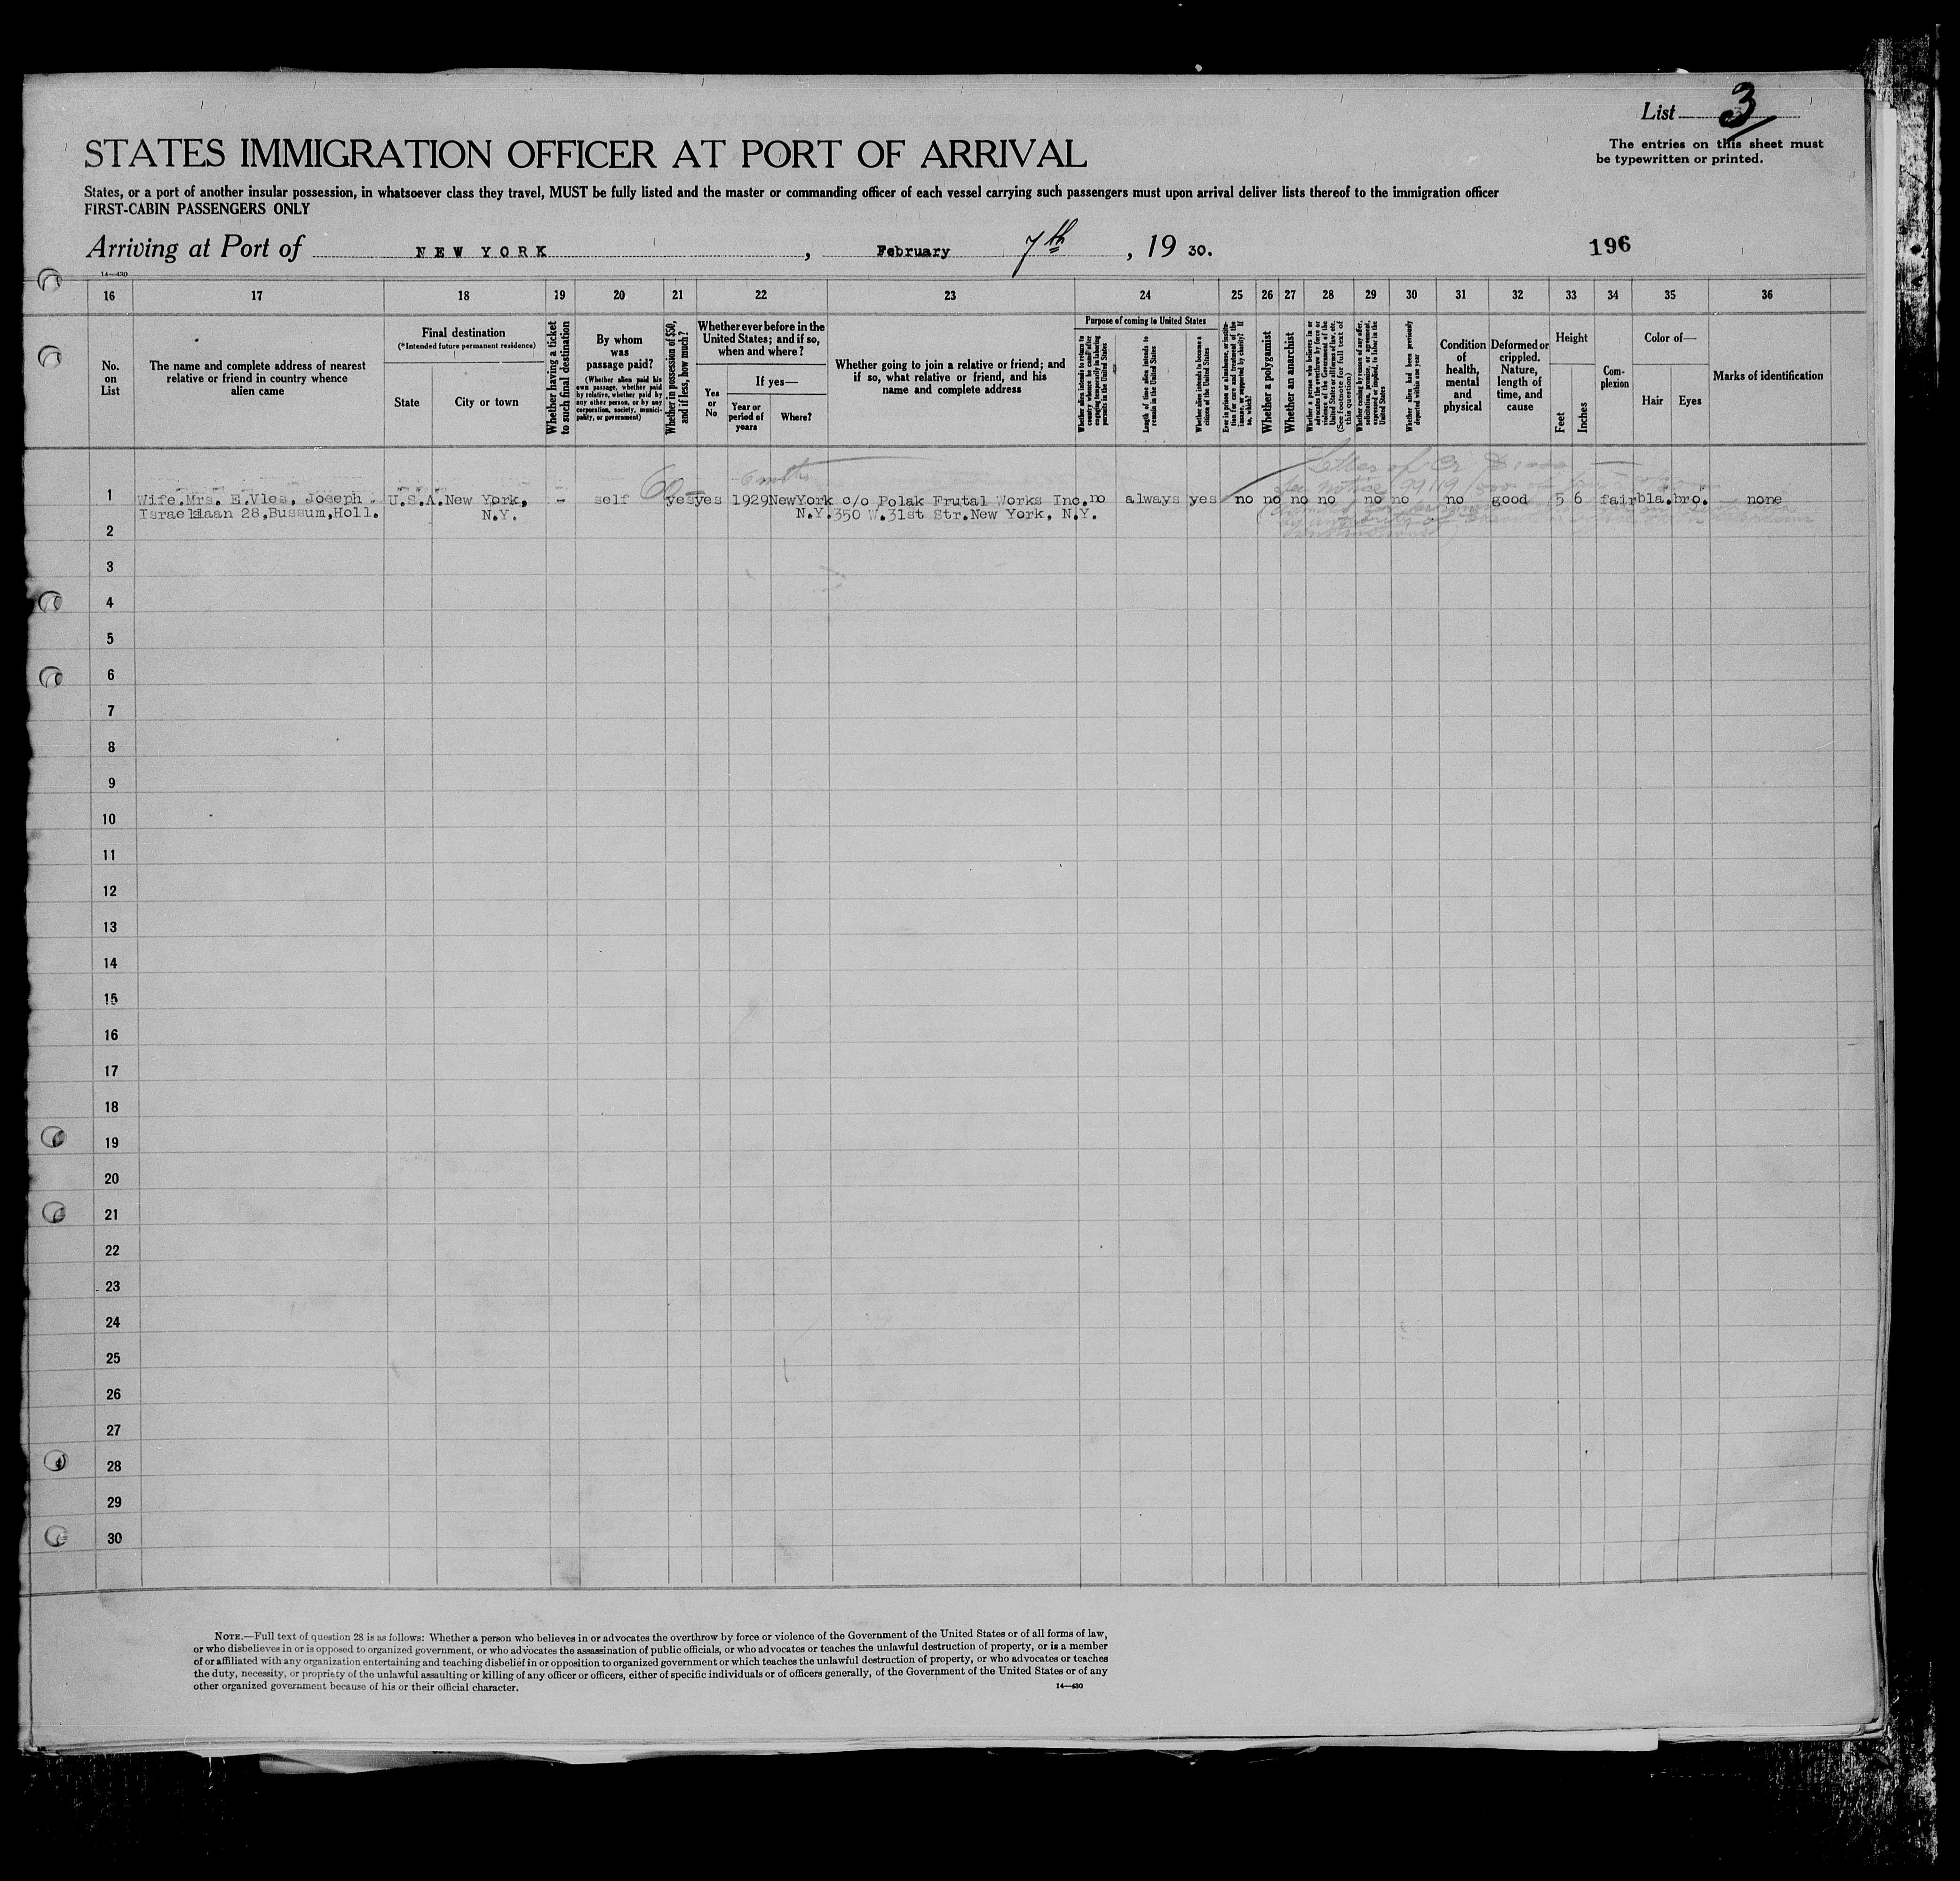 List 3
The entries on this sheet must
be typewritten or printed.
STATES IMMIGRATION OFFICER AT PORT OF ARRIVAL
States, or a port of another insular possession, in whatsoever class they travel, MUST be fully listed and the master or commanding officer of each vessel carrying such passengers must upon arrival deliver lists thereof to the immigration officer
FIRST-CABIN PASSENGERS ONLY
Arriving at Port of NEW YORK, February 7th, 1930.
196
14—430
16 17 18 19 20 21 22 23 24 25 26 27 28 29 30 31 32 33 34 35 36
No.
on
List
The name and complete address of nearest
relative or friend in country whence
alien came
Final destination
(*Intended future permanent residence)
State
City or town
Whether having a ticket
to such final destination
By whom
was
passage paid?
(Whether alien paid his
own passage, whether paid
by relative, whether paid by
any other person, or by any
corporation, society, munici-
pality, or government)
Whether in possession of $50,
and if less, how much?
Whether ever before in the
United States; and if so,
when and where?
Yes
or
No
If yes—
Year or
period of
years
Where?
Whether going to join a relative or friend; and
if so, what relative or friend, and his
name and complete address
Purpose of coming to United States
Whether alien intends to return to
country whence he came after
engaging temporarily in laboring
pursuits in the United States
Length of time alien intends to
remain in the United States
Whether alien intends to become a
citizen of the United States
Ever in prison or almshouse, or institu-
tion for care and treatment of the
insane, or supported by charity? If
so, which?
Whether a polygamist
Whether an anarchist
Whether a person who believes in or
advocates the overthrow by force or
violence of the Government of the
United States or all forms of law, etc.
(See footnote for full text of
this question)
Whether coming by reason of any offer,
solicitation, promise, or agreement,
expressed or implied, to labor in the
United States
Whether alien had been previously
deported within one year
Condition
of
health,
mental
and
physical
Deformed or
crippled.
Nature,
length of
time, and
cause
Height
Feet
Inches
Com-
plexion
Color of—
Hair
Eyes
Marks of identification
60
6 mths
Letter of Cr $1000
See notice
1 Wife.Mrs. E.Vles, Joseph U.S.A. New York, - self yes yes 1929 NewYork c/o Polak Frutal Works Inc. no always yes no no no no no no no good 5 6 fair bla. bro. none
Israelslaan 28,Bussum,Holl. N.Y. N.Y. 350 W.31st Str.New York, N.Y.
2
3
4
5
6
7
8
9
10
11
12
13
14
15
16
17
18
19
20
21
22
23
24
25
26
27
28
29
30
NOTE.—Full text of question 28 is as follows: Whether a person who believes in or advocates the overthrow by force or violence of the Government of the United States or of all forms of law,
or who disbelieves in or is opposed to organized government, or who advocates the assassination of public officials, or who advocates or teaches the unlawful destruction of property, or is a member
of or affiliated with any organization entertaining and teaching disbelief in or opposition to organized government or which teaches the unlawful destruction of property, or who advocates or teaches
the duty, necessity, or propriety of the unlawful assaulting or killing of any officer or officers, either of specific individuals or of officers generally, of the Government of the United States or of any
other organized government because of his or their official character.
14—430